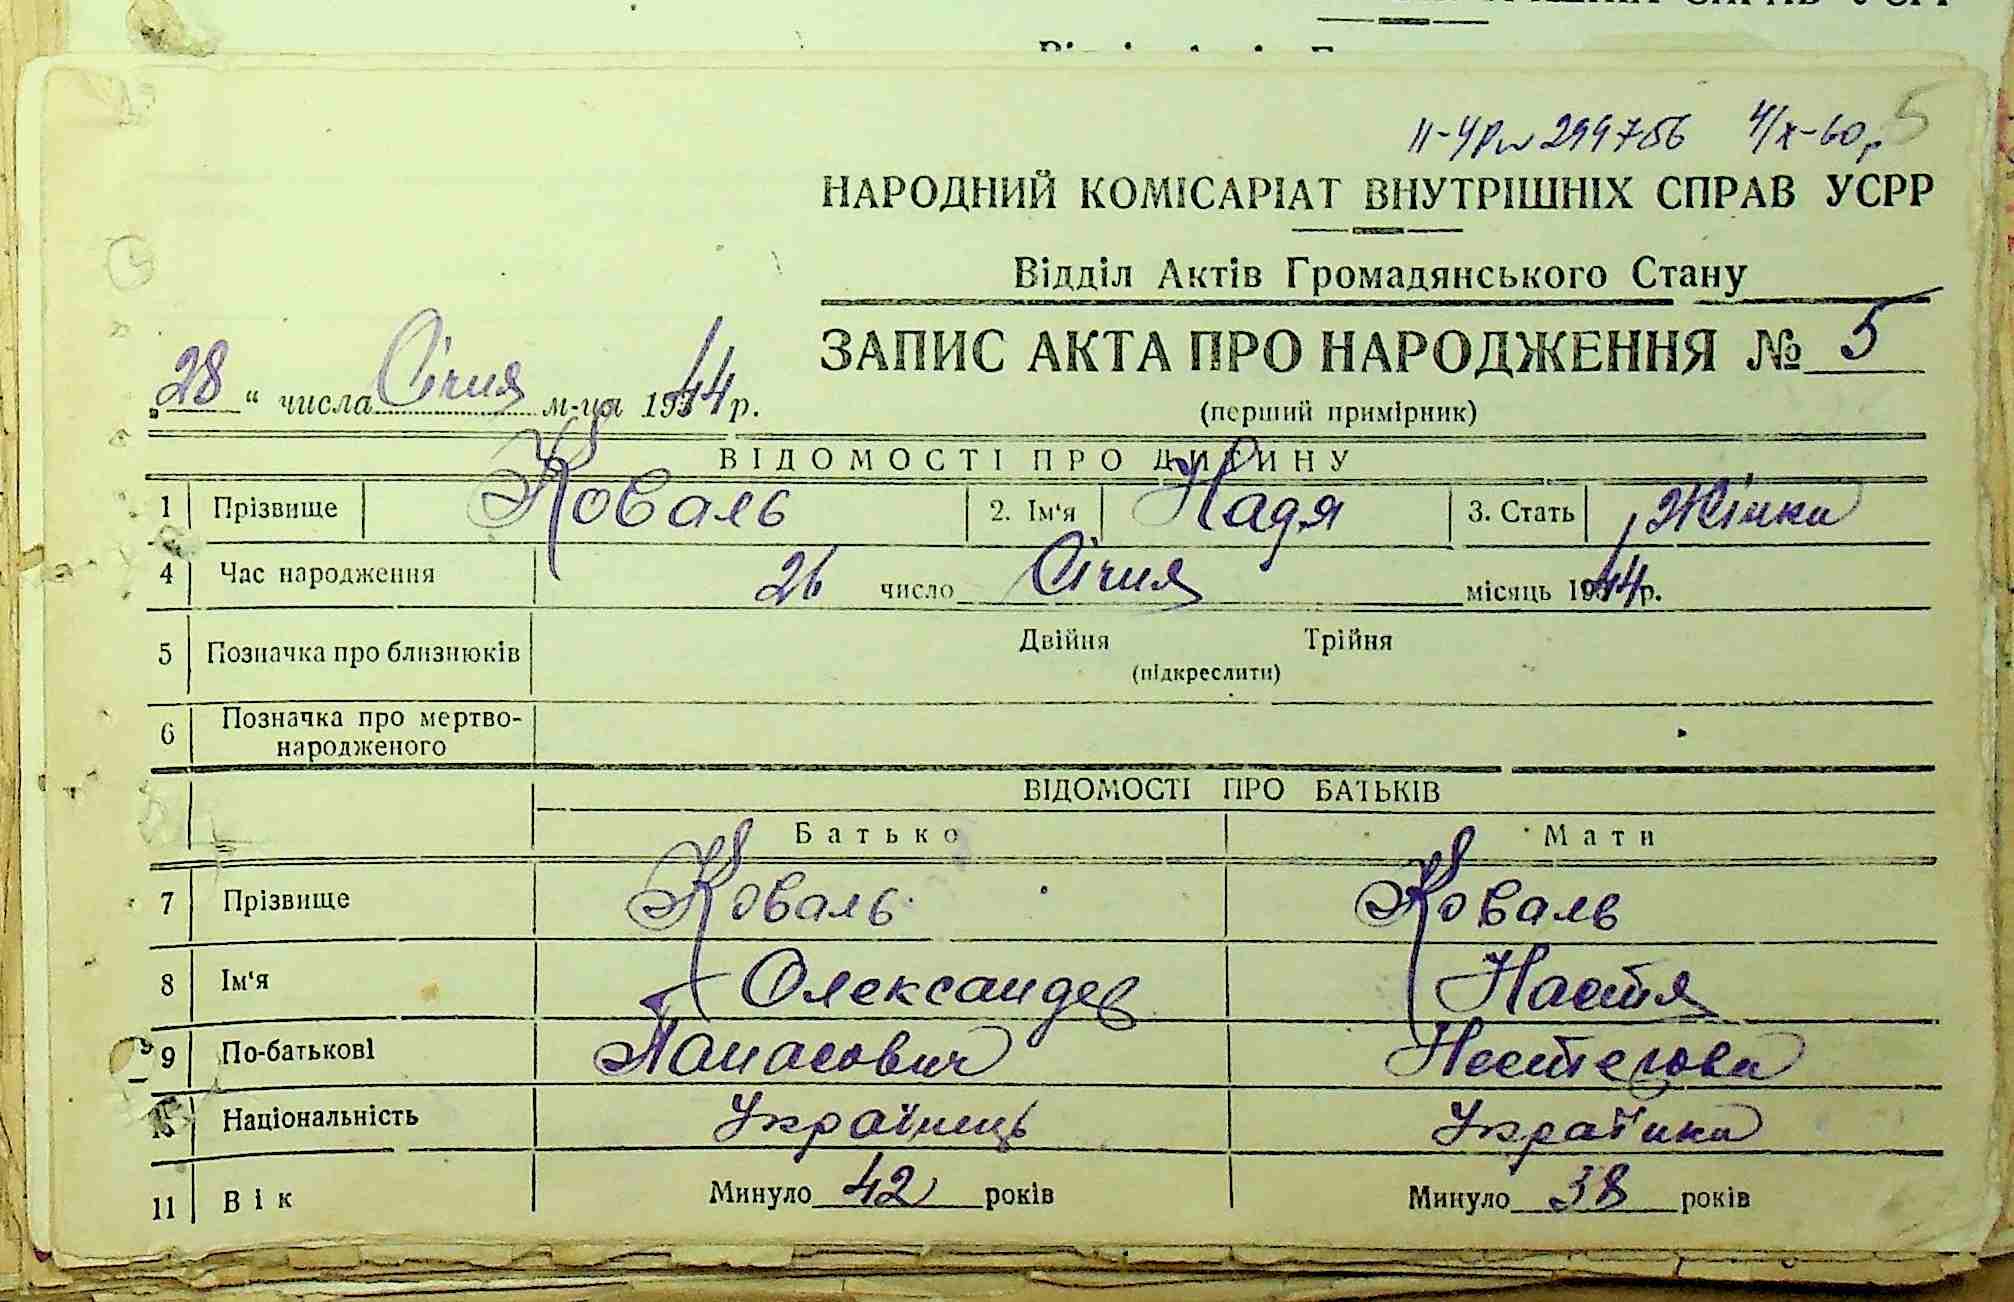 II-УРи 299756 4/X-60р 5
НАРОДНИЙ КОМІСАРІАТ ВНУТРІШНІХ СПРАВ УСРР
Відділ Актів Громадянського Стану
ЗАПИС АКТА ПРО НАРОДЖЕННЯ № 5
„28“ числа Січня м-ця 1944 р.
(перший примірник)
ВІДОМОСТІ ПРО ДИТИНУ
1 Прізвище Коваль 2. Ім‘я Надя 3. Стать Жінка
4 Час народження 26 число Січня місяць 1944р.
5 Позначка про близнюків Двійня Трійня
(підкреслити)
6 Позначка про мертво-
народженого
ВІДОМОСТІ ПРО БАТЬКІВ
Батько Мати
7 Прізвище Коваль Коваль
8 Ім‘я Олександер Настя
9 По-батькові Панасович Нестерова
10 Національність Українець Українка
11 Вік Минуло 42 років Минуло 38 років